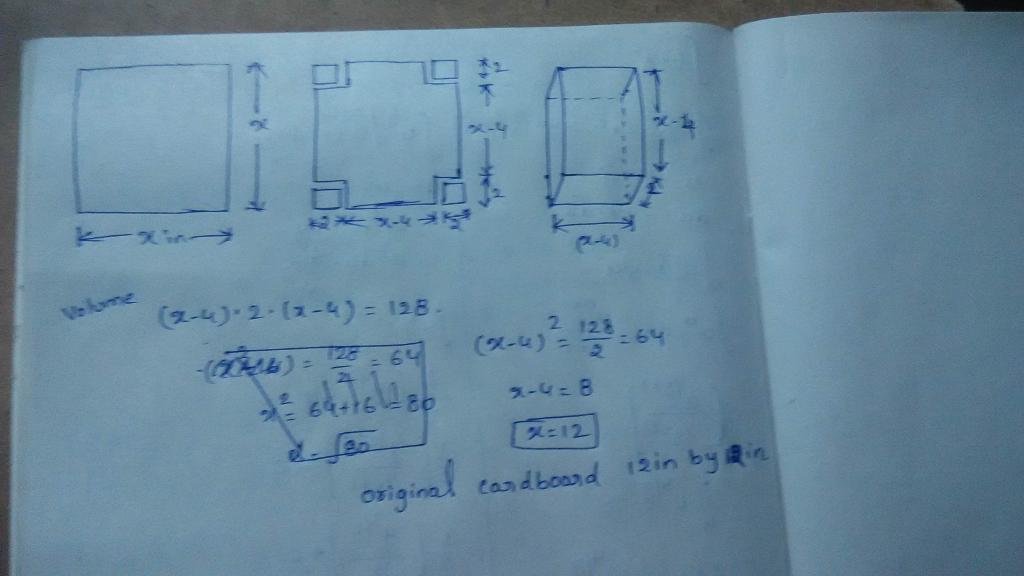 x
x in
2
x-4
2
2 x-4 2
x-4
2
(x-4)
Volume (x-4)·2·(x-4) = 128.
= 128/2 = 64
x² = 64+16 = 80
x = √80
(x-4)² = 128/2 = 64
x-4 = 8
x=12
original cardboard 12in by in